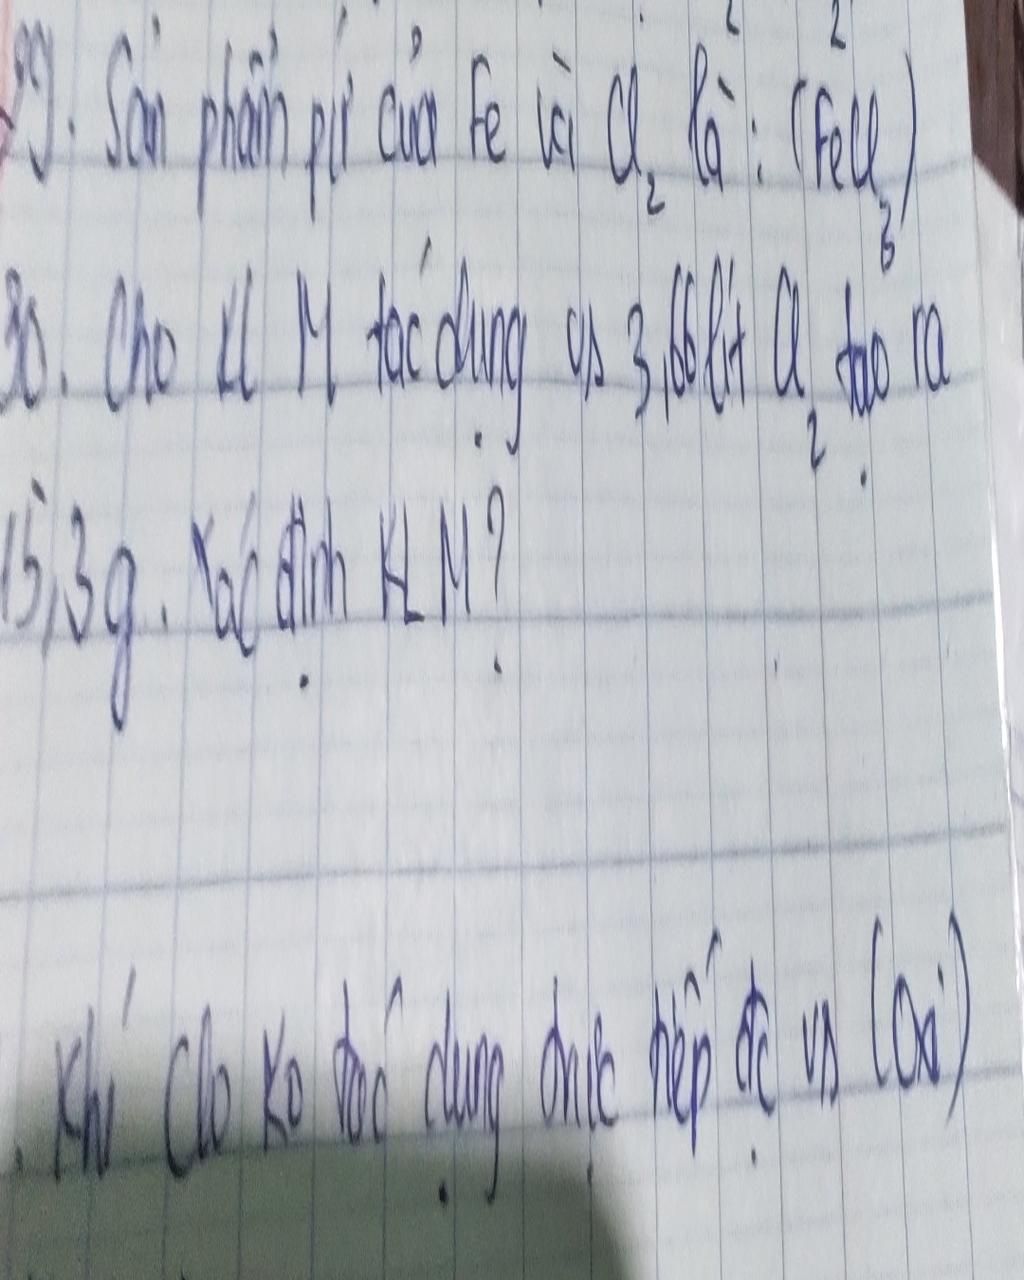 29. Sản phẩm pứ của Fe và Cl2 là: (FeCl3)
30. Cho KL M tác dụng vs 3,66 lít Cl2 tạo ra
15,3g. Xác định KL M?
Khí Clo ko tác dụng trực tiếp đc vs (Oxi)